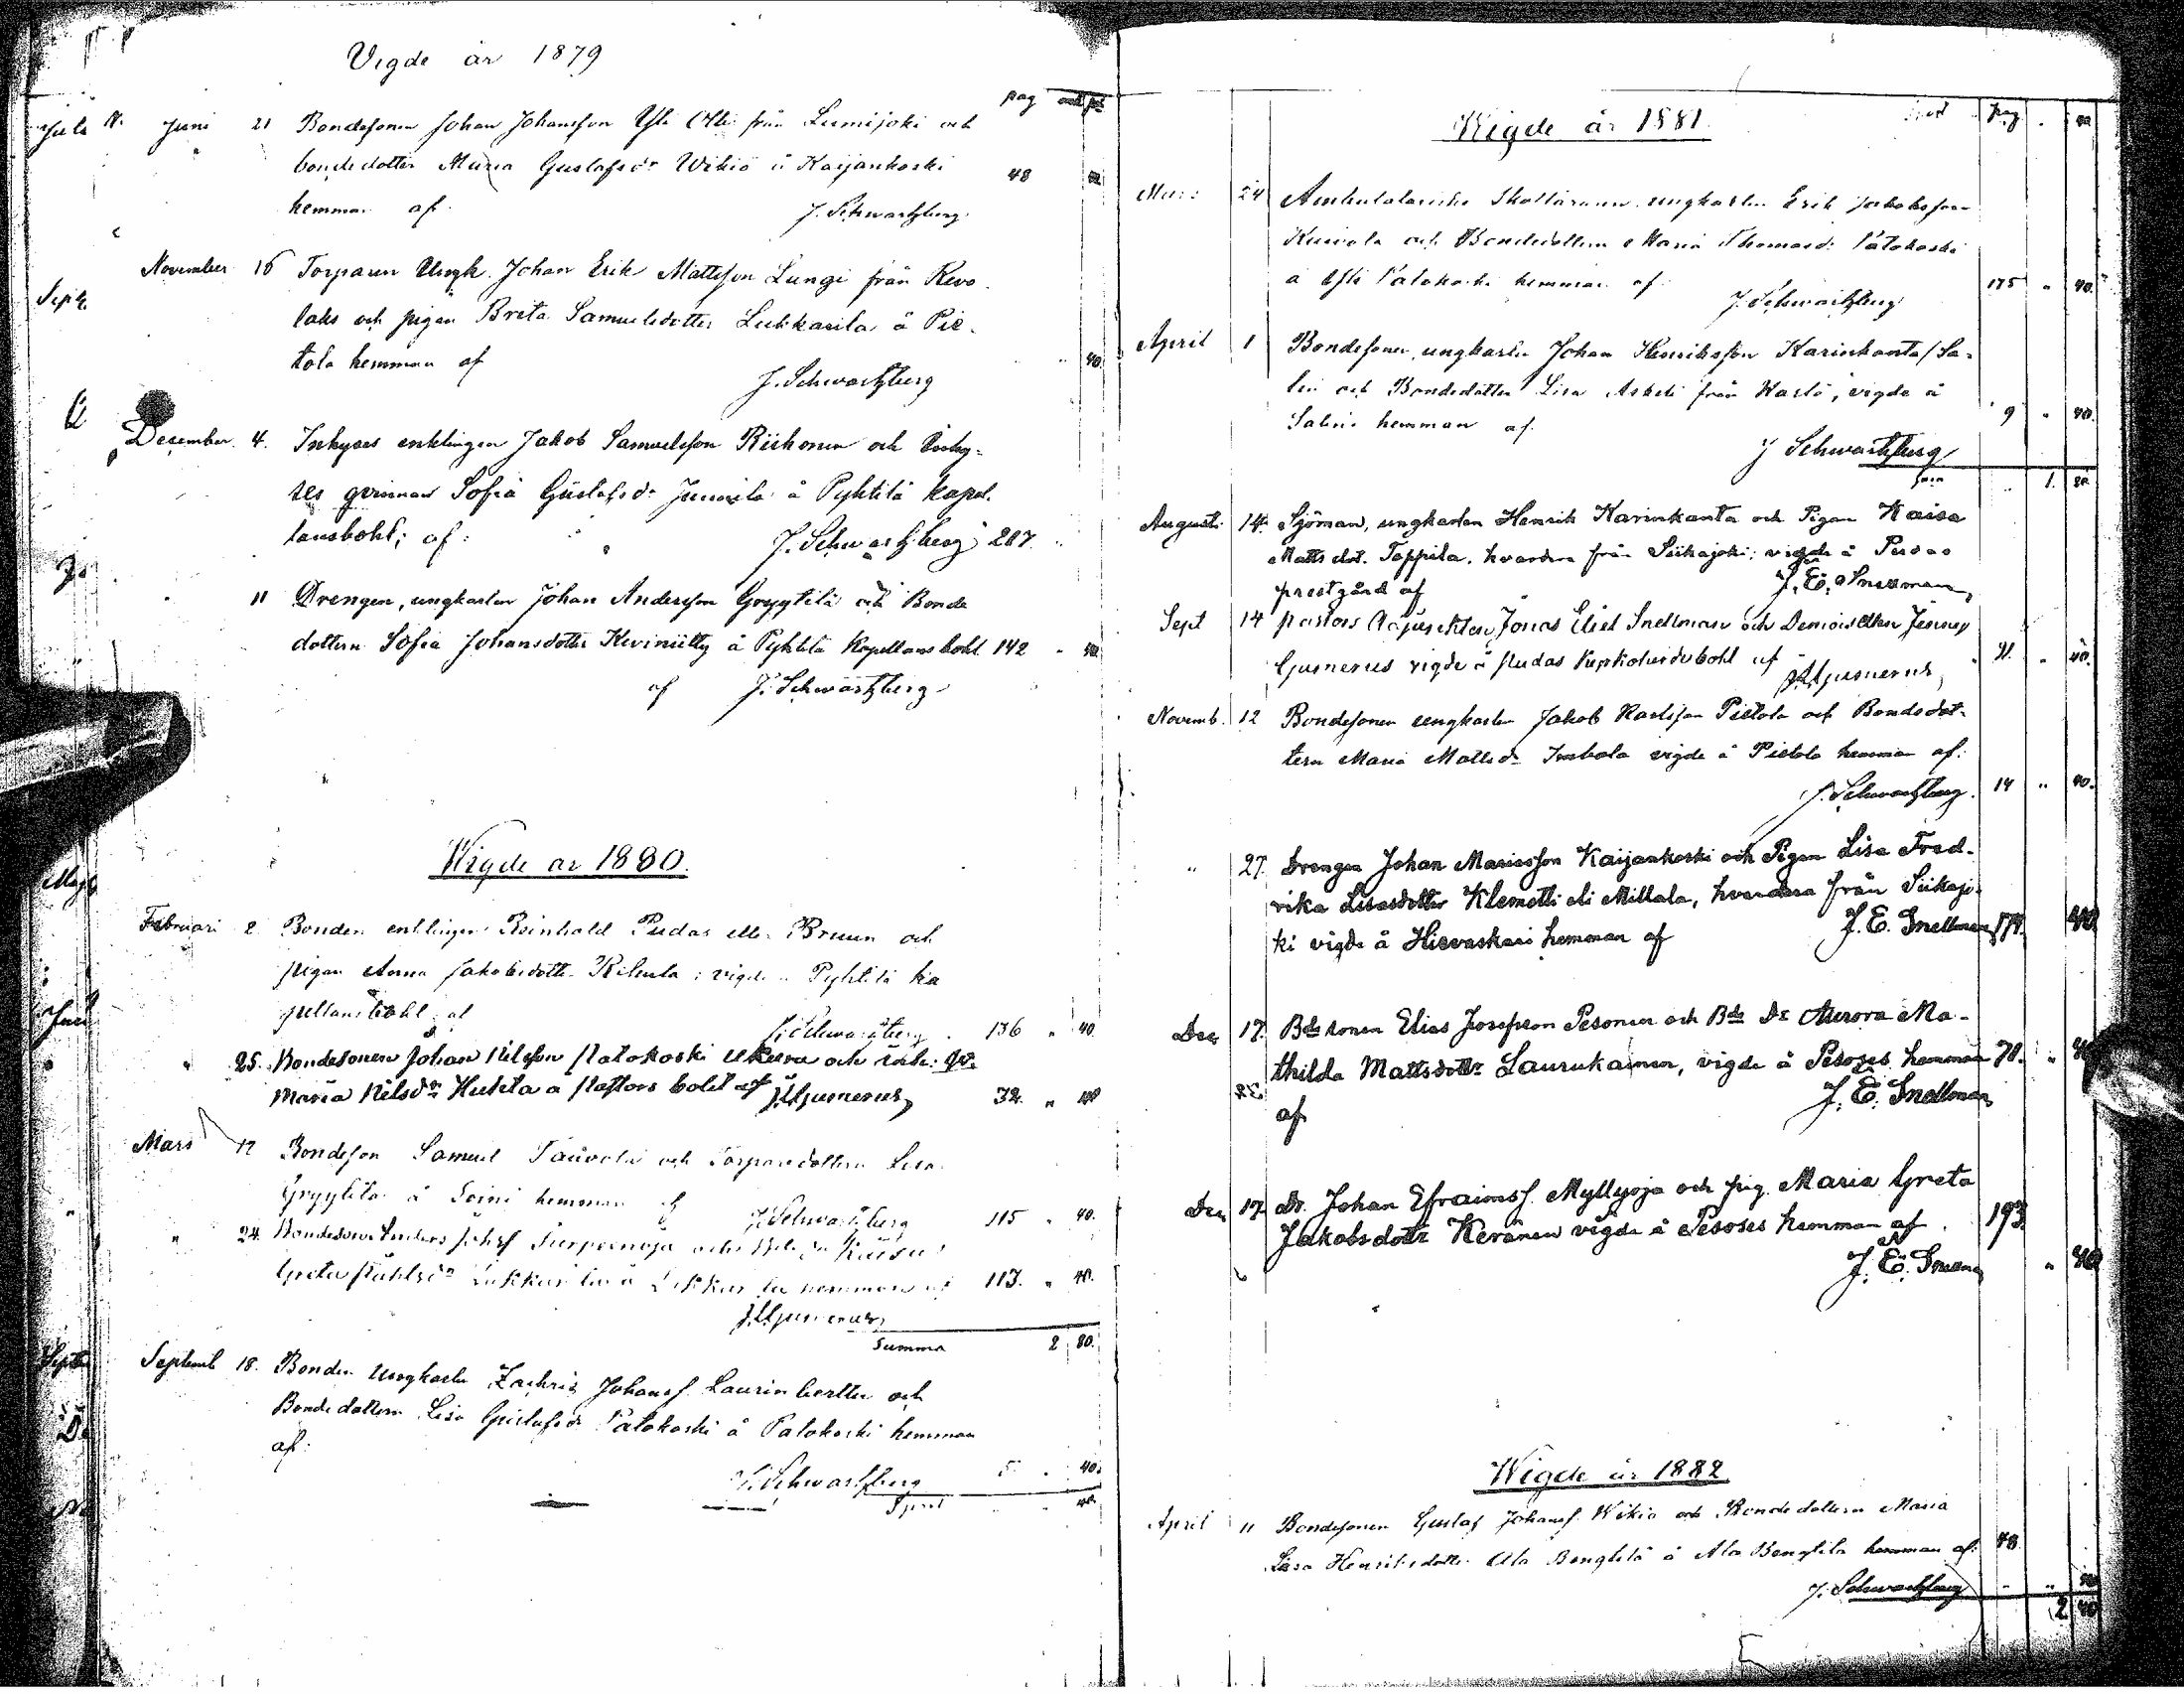 Vigde år 1879
pag
Juni 21 Bondesonen Johan Johansson Yli Olli från Lumijoki och
bondedotter Maria Gustafsdr Wikiö å Kaijankoski 48
hemman af J. Schwartzberg
November 16 Torparen Ungk. Johan Erik Mattsson Lungi från Revo-
laks och pigan Breta Samuelsdotter Lukkarila å Pie-
tola hemman af 40
J. Schwartzberg
December 4. Inhyses enklingen Jakob Samuelsson Riikonen och Inhy-
ses qvinnan Sofia Gustafsdr Junnila å Pyhtilä kapel-
lansbohl; af: J. Schwartzberg 287
11 Drengen, ungkarlen Johan Andersson Gryytilä och Bonde
dottern Sofia Johansdotter Keviniitty å Pyhtilä Kapellans bohl 142 " 40
af J. Schwartzberg
Wigde år 1880.
Februari 2 Bonden enklingen Reinhold Pudas eller Bruun och
pigan Anna Jakobsdotter vigde å Pyhtilä ka
pellansbohl af
J. Schwartzberg 136 " 40
" 25. Bondesonen Johan Nilsson Patokoski Ukura och inh: qv:
Maria Nilsdr Huhta a Pastors bolet af J. Gumerus, 32. " 40
Mars 12 Bondeson Samuel Tauvola och Torparedottern Lisa
Gryytilä å Soini hemman af J. Schwartzberg 115 " 40.
" 24. Bondesonen Anders Johsf Surpeenoja och Kaisa
Greta Påhlsdr Lukkarila å Lukkarila hemman af 113. " 40.
J. Gumerus
Summa 2 80.
Septemb 18. Bonden Ungkarln Zachris Johansf. Laurin herttu och
Bondedottern Lisa Gustafsdr Patokoski å Patokoski hemman
af:
J. Schwartzberg 5 " 40.
Wigde år 1881.
pag
Mars 24 Ambulatoriske Skolläraren ungkarlen Erik Jakobsson
Kuivala och Bondedottern Maria Thomasdr Patokoski
å Yli Patokoski hemman af 175 " 40.
J. Schwartzberg
April 1 Bondesonen, ungkarlen Johan Henriksson Karinkanta/Sa-
lin och Bondedotter Lisa Askeli från Karlö, vigde å
Salin hemman af 9 " 40.
J Schwartzberg
1. 20
Augusti 14. Sjöman, ungkarlen Henrik Karinkanta och Pigan Kaisa
Matts dot. Toppila, hvardera från Siikajoki; vigde å Pudas
prestgård af J. E. Snellman,
Sept 14 pastors Adjunkten Jonas Eliel Snellman och Demoisellen Jenny
Gumerus vigde å Pudas Kyrkoherdebohl af 21. " 40.
Gumerus,
Novemb. 12 Bondesonen ungkarlen Jakob Karlsson Pietola och Bondedot-
tern Maria Mattsdr vigde å Pietola hemman af:
J. Schwartzberg. 14 " 40.
" 27. Drengen Johan Mariasson Kaijankoski och Pigan Lisa Fred-
rika Lisasdotter Klemetti eli Millala, hvardera från Siikajo-
ki vigde å Hirvaskari hemman af J. E. Snellman 40
Dec 17. Bdesonen Elias Josefson Pesonen och Bde Dr Aurora Ma-
thilda Mattsdottr Laurukainen, vigde å Pesoses hemman 70. " 40
af J. E. Snellman,
Dec 17. Dr. Johan Efraimsf. Myllyoja och pig. Maria Greta
Jakobsdottr Keränen vigde å Pesoses hemman af 193
J. E. Snellman " 40
Wigde år 1882
April 11 Bondesonen Gustaf Johansf. Wikiö och Bondedottern Maria
Lisa Henriksdotter Ala Bengtilä å Ala Bengtilä hemman af: 48
J. Schwartzberg " 40
2 40